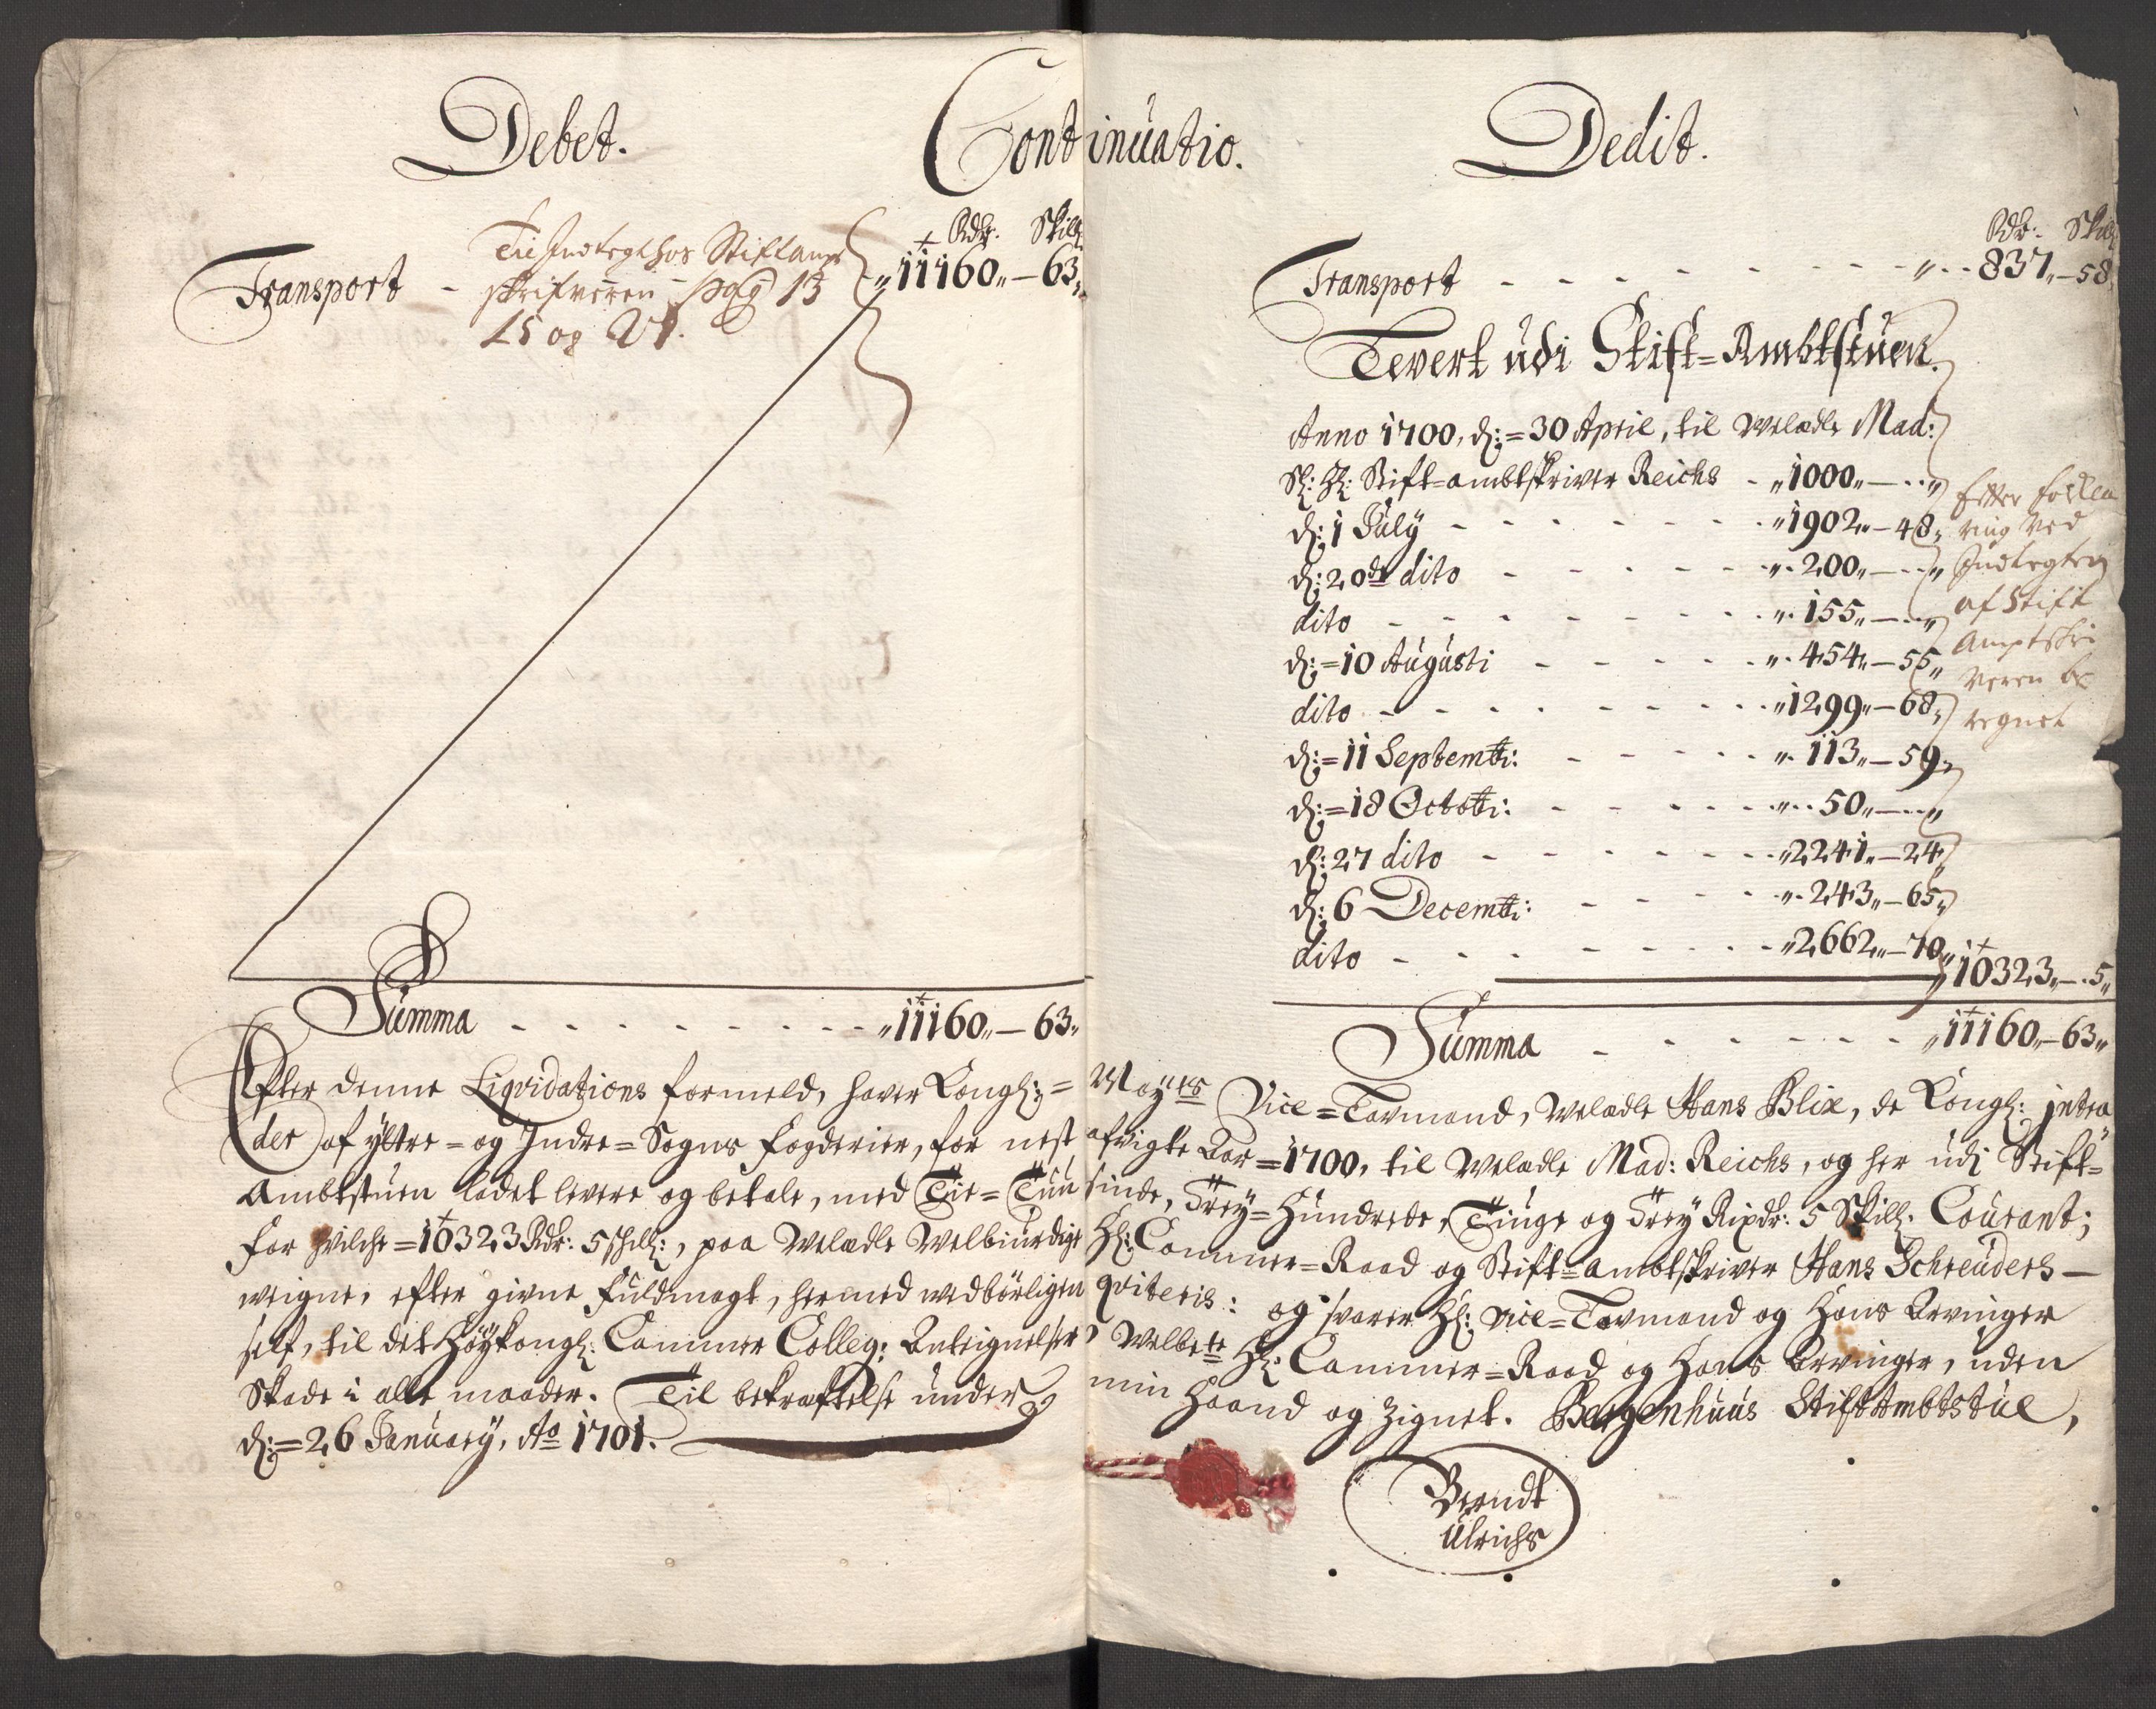 Debet.
Continuatio.
Dedit.
Rdr. Skill
Transport - Til Indtegt hos Stiftamt
skrifveren - pag 13
15 og 21.
„11160„ — 63„
Summa - - - - - - - - „11160„ — 63„
Rdr: Skill
Transport - - - - - - - „ - - 837„ — 58
Levert udi Stift=Ambtstuen.
Anno 1700, d: = 30 April, til Welædle Mad:
Sl: Hl: Stift=ambtskriver Reichs - „1000„ — - - „
d: 1 July - - - - - - „1902„ — 48„
d: 20de dito - - - - - „ - 200„ — - - „
dito - - - - - - - „ - 155„ — - - „
d: = 10 Augusti - - - - - „ - 454„ — 55„
dito - - - - - - - - „1299„ — 68„
d: = 11 Septembr: - - - - „ - 113„ — 59„
d: = 18 Octobr: - - - - - „ - - 50„ — - - „
d: 27 dito - - - - - - - „2241„ — 24
d: 6 Decembr: - - - - „ - 243„ — 65„
dito - - - - - - - „2662„ — 70„
„10323„ — - 5„
Efter
ring ved
Indtegten
af Stift
Amptskri
veren be
regnet
Summa - - - - - - „11160„ — 63„
Efter denne Liqvidations formeld, haver Kongl: = Mayts Vice=Lavmand, Welædle Hans Blix, de Kongl: intra
der af yttre= og Indre=Sogns fogderier, for nest afvigte Aar = 1700, til Welædle Mad: Reichs, og her udi Stift=
Ambtstuen ladet levere og betale, med Tie=Tuusinde, Trey=Hundrede, Tiuge og Trey Rixdr: 5 Skill: Courant;
for hvilche = 10323 Rdr: 5 skill:, paa Welædle Welbiurdige Hl: Cammer=Raad og Stift=ambtskriver Hans Schreuders —
weigne, efter givne fuldmagt, hermed vedbörligen qviteris: og svarer Hl: Vice=Lavmand og Hans Arvinger
self, til det Höykongl: Cammer Colleg: Anteignelser, Welbte Hl: Cammer=Raad og Hans Arvinger, uden
Skade i alle maader. Til bekræftelse under min Haand og Zignet. Bergenhuus StiftAmbtstue,
d: = 26 January, Ao 1701.
Berndt
Ulrichs